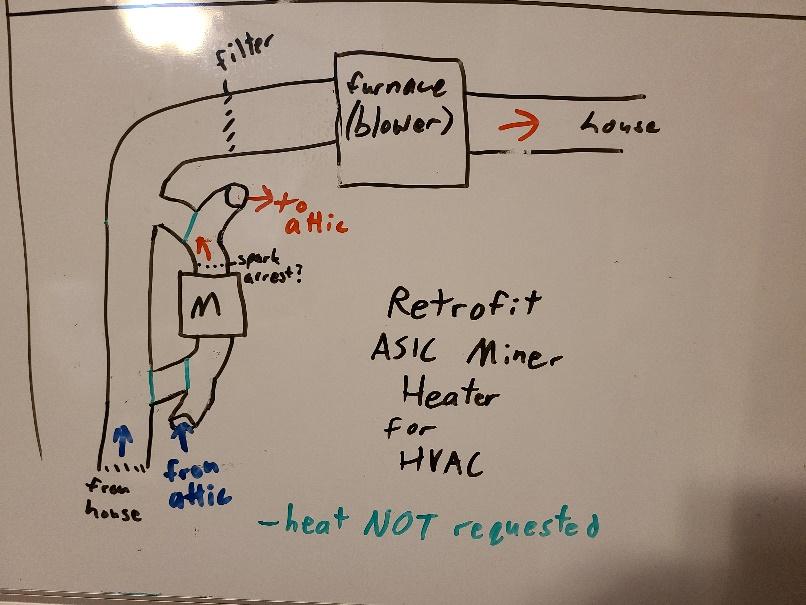 filter
furnace
(blower)
house
to
attic
spark
arrest?
M
from
house
from
attic
Retrofit
ASIC Miner
Heater
for
HVAC
-heat NOT requested